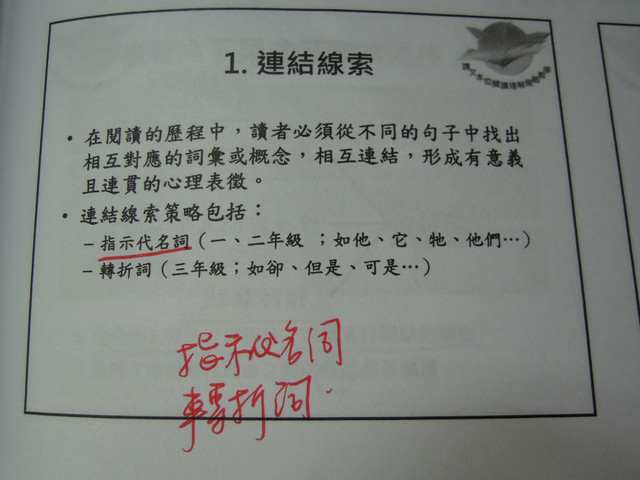 1. 連結線索
• 在閱讀的歷程中，讀者必須從不同的句子中找出
相互對應的詞彙或概念，相互連結，形成有意義
且連貫的心理表徵。
• 連結線索策略包括：
– 指示代名詞（一、二年級 ；如他、它、牠、他們…）
– 轉折詞（三年級；如卻、但是、可是…）
指示代名詞
轉折詞